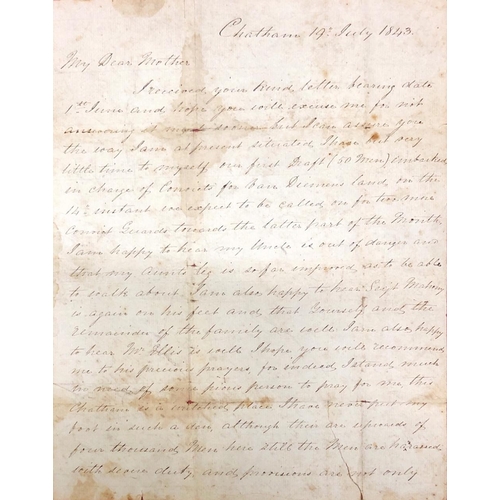 Chatham 19th July 1843
My Dear Mother
I received your kind letter bearing date
1st June and hope you will excuse me for not
answering it sooner but I can assure you
the way I am at present situated I have but very
little time to myself our first Draft (50 Men) embarked
in charge of Convicts for Van Diemens land on the
14th instant we expect to be called on for two more
Convict Guards towards the latter part of the Month
I am happy to hear my Uncle is out of danger and
that my Aunts leg is so far improved as to be able
to walk about I am also happy to hear
is again on his feet and that yourself and the
remainder of the family are well I am also happy
to hear Mr Ellis is well I hope you will recommend
me to his precious prayers for indeed I stand much
in need of some pious person to pray for me this
Chatham is a wretched place I have never put my
foot in such a den, although there are upwards of
four thousand Men here still the Men are harassed
with severe duty and provisions are not only